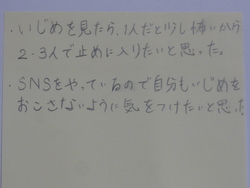 ・いじめを見たら、1人だと少し怖いから
2・3人で止めに入りたいと思った。
・SNSをやっているので自分もいじめを
おこさないように気をつけたいと思った